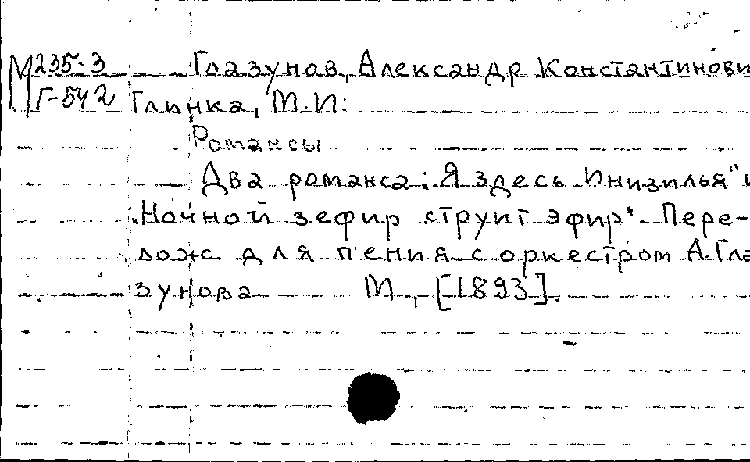 М 235-3 Глазунов, Александр Константинови
Г-542 Глинка, М.И.
Романсы
Два романса: Я здесь Инизилья" и
"Ночной зефир струит эфир". Пере-
лож для пения с оркестром А. Гла
зунова М., [1893].